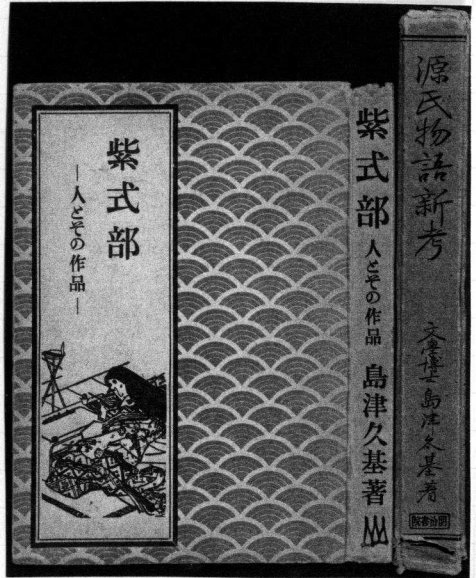 紫式部
―人とその作品―
紫式部 人とその作品 島津久基著
源氏物語新考 文學博士島津久基著
明治書院